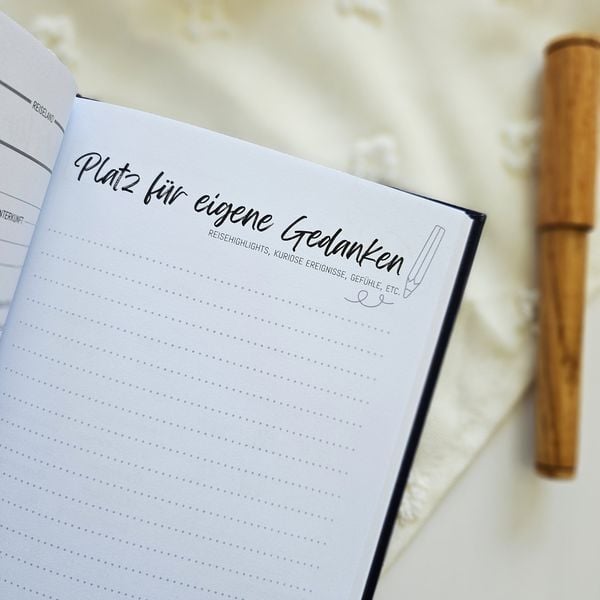 REISELAND
Platz für eigene Gedanken
REISEHIGHLIGHTS, KURIOSE EREIGNISSE, GEFÜHLE, ETC.